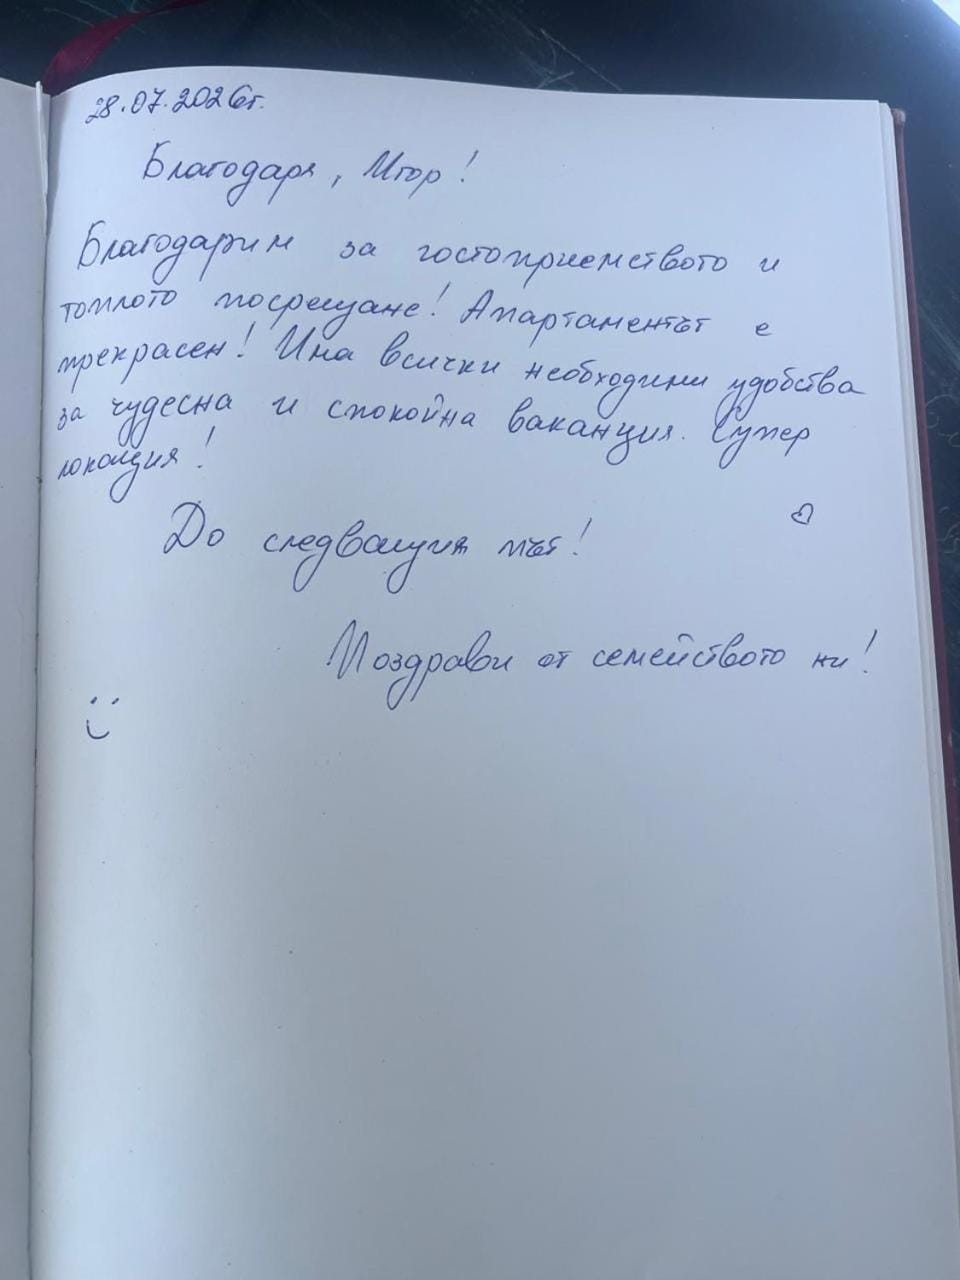 28.07.2026г.
Благодаря, Игор!
Благодарим за гостоприемството и
топлото посрещане! Апартаментът е
прекрасен! Има всички необходими удобства
за чудесна и спокойна ваканция. Супер
локация!
До следващия път!
Поздрави от семейството ни!